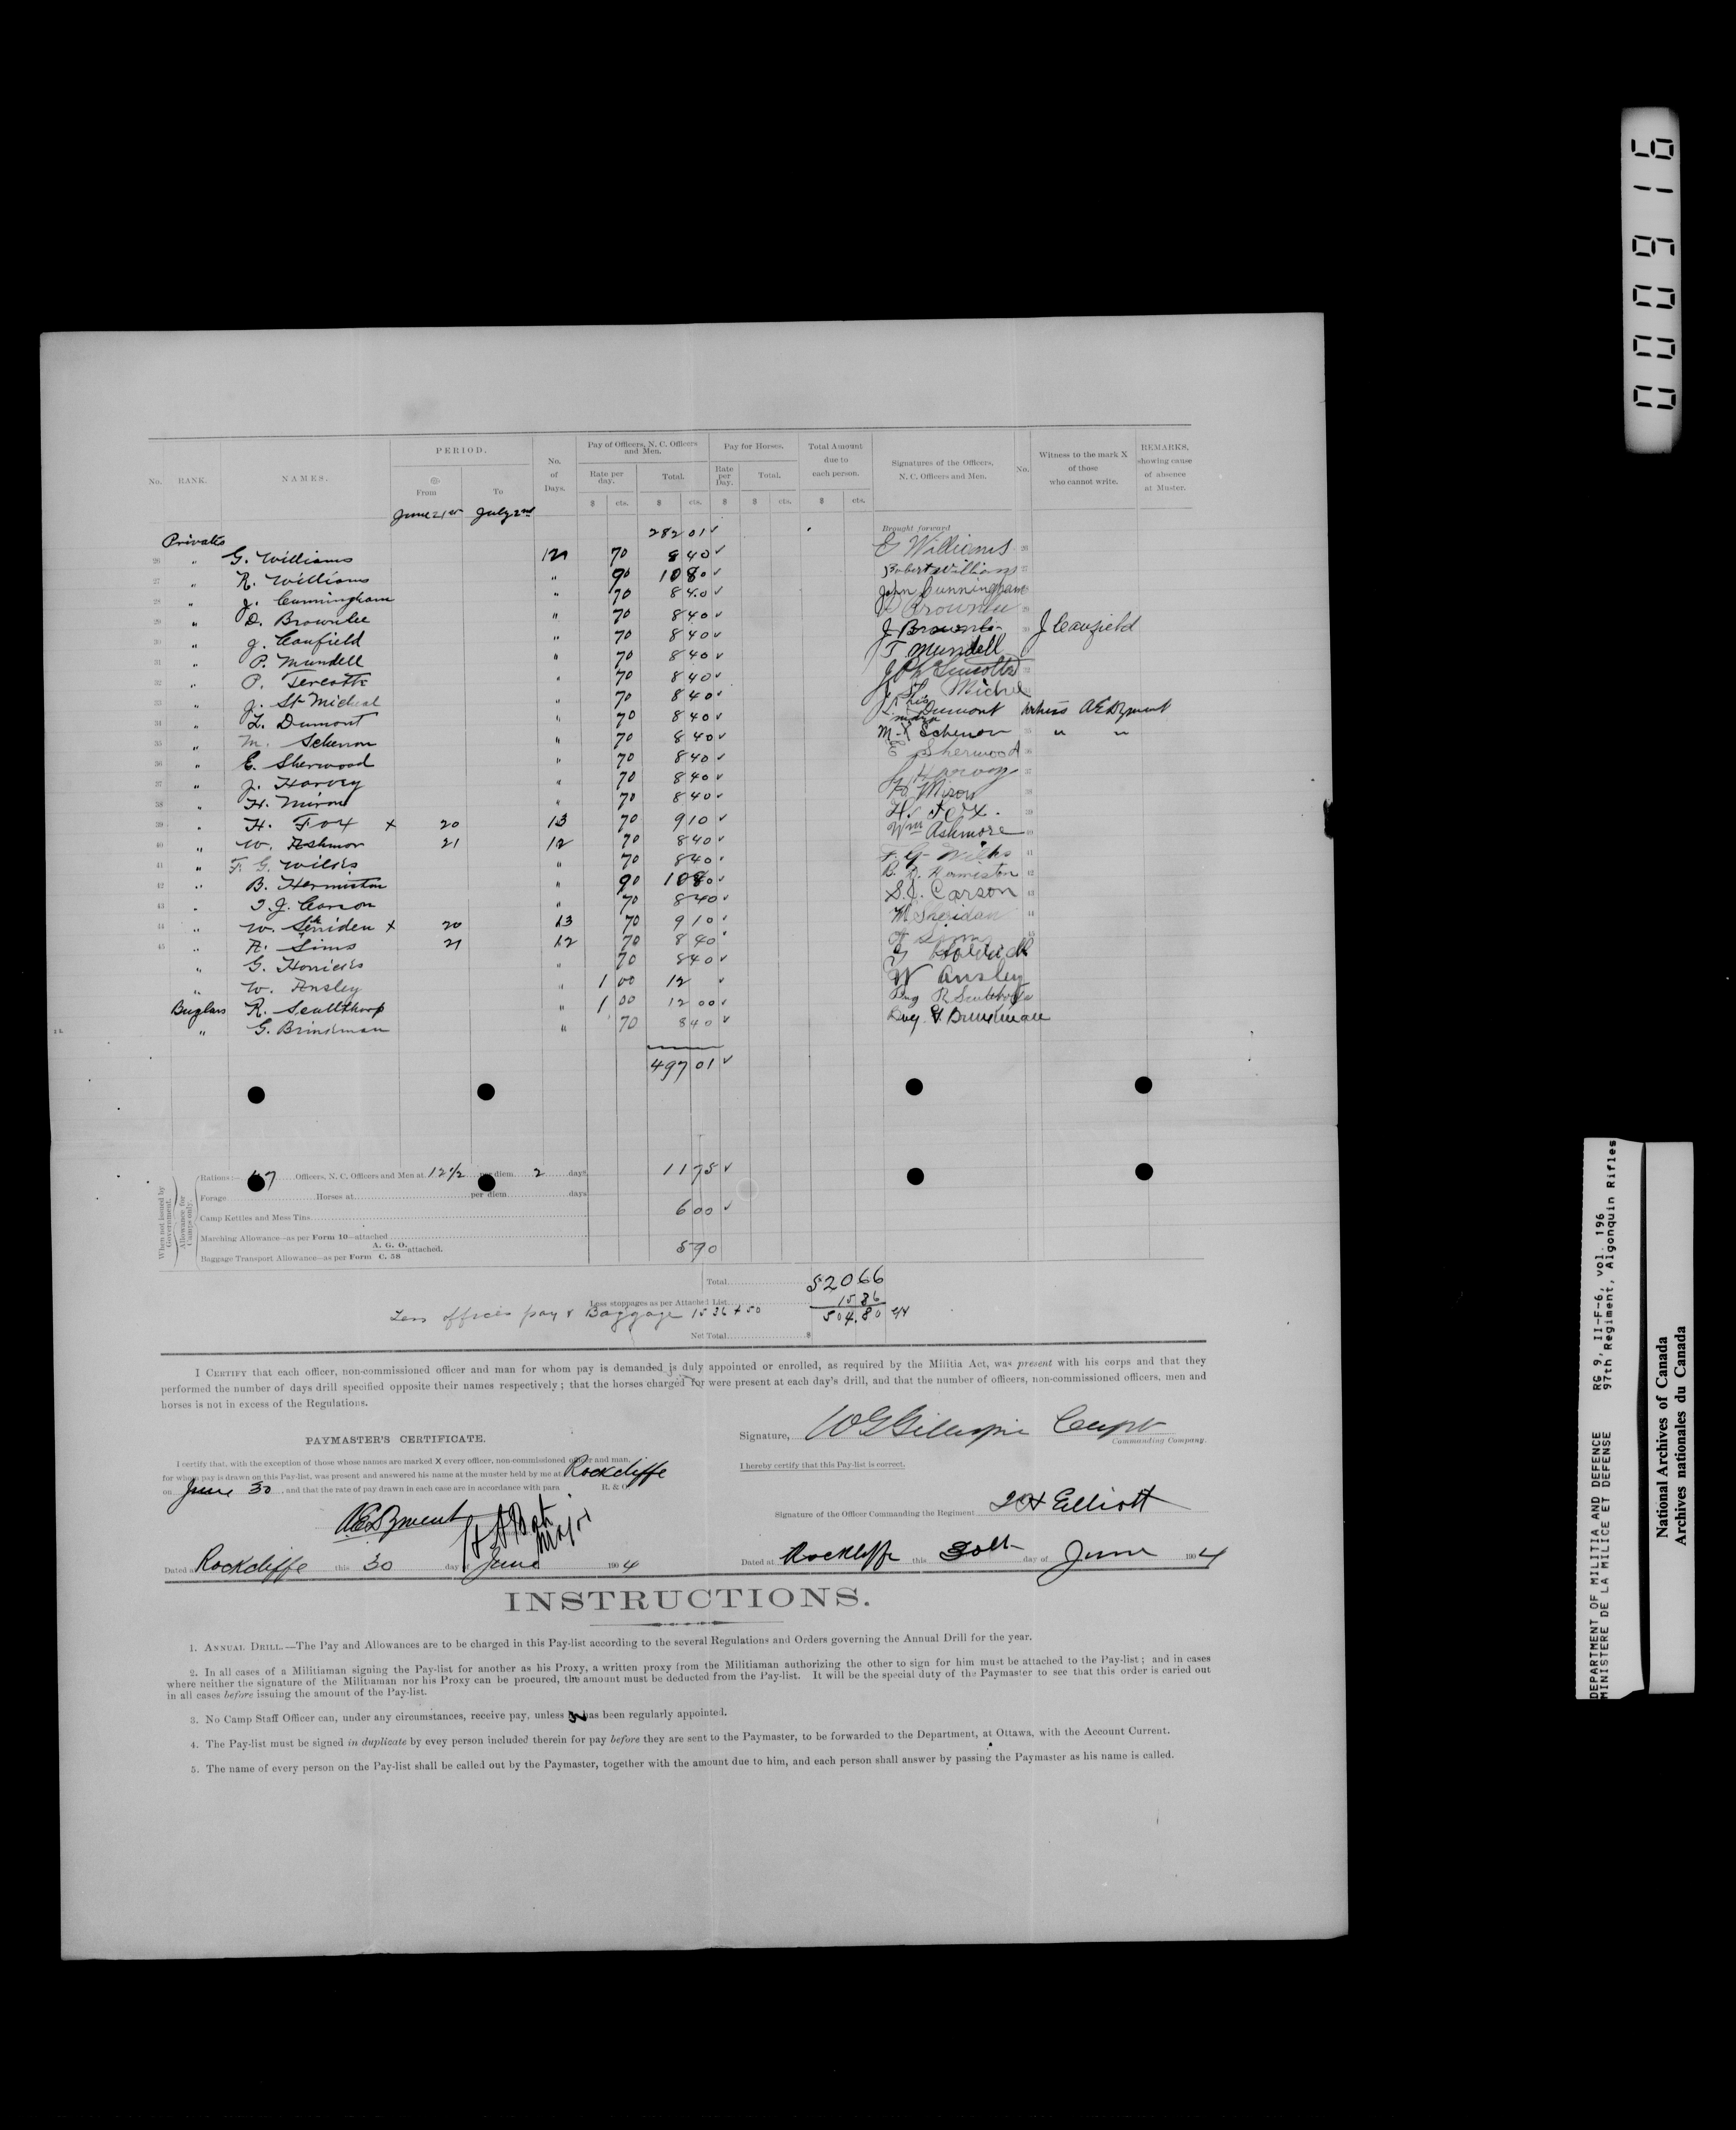 No. RANK. NAMES. PERIOD. No. of Days. Pay of Officers, N. C. Officers and Men. Pay for Horses. Total Amount due to each person. Signatures of the Officers, N. C. Officers and Men. No. Witness to the mark X of those who cannot write. REMARKS, showing cause of absence at Muster.
From To Rate per day. Total. Rate per Day. Total.
$ cts. $ cts. $ $ cts. $ cts.
June 21st July 2nd
282 01 Brought forward
Privates
26 " G. Williams 12 70 8 40 G Williams 26
27 " R. Williams " 90 10 80 Robert Williams 27
28 " J. Cunningham " 70 8 40 John Cunningham
29 " D. Brownlee " 70 8 40 29
30 " J. Caufield " 70 8 40 30 J Caufield
31 " P. Mundell " 70 8 40 T Mundell
32 " P. Turcotte " 70 8 40 32
33 " J. St Micheal " 70 8 40 J St. Michel
34 " L. Dumont " 70 8 40 L his Dumont mark Witness A E Dyment
35 " M. Schenon " 70 8 40 M. X Schenon 35 " "
36 " E. Sherwood " 70 8 40 E Sherwood 36
37 " J. Harvey " 70 8 40 J Harvey 37
38 " H. Miron " 70 8 40 H Miron 38
39 " H. Fox x 20 13 70 9 10 H. Fox. 39
40 " W. Ashmor 21 12 70 8 40 Wm Ashmore 40
41 " F. G. Wilkes " 70 8 40 F. G. Wilks 41
42 " B. Hermiston " 90 10 80 B. R. Hermiston 42
43 " S. J. Carson " 70 8 40 S. J. Carson 43
44 " W. Sheriden x 20 13 70 9 10 M Sheridan 44
45 " A. Sims 21 12 70 8 40 A Sims 45
" G. " 70 8 40
" W. Ansley " 1 00 12 W Ansley
Buglars R. Sculthorp " 1 00 12 00 Bug R Sculthorpe
" G. Brinkman " 70 8 40 Bug G Brinkman
497 01
When not issued by Government. Allowance for Camps only.
Rations:— 47 Officers, N. C. Officers and Men at 12½ per diem 2 days 11 75
Forage Horses at per diem days
Camp Kettles and Mess Tins 6 00
Marching Allowance—as per Form 10—attached
Baggage Transport Allowance—as per Form A. G. O. C. 58 attached. 5 90
Total 520 66
Less stoppages as per Attached List 15 86
Less officers pay & Baggage 15 36 + 50 504.80
Net Total $
I CERTIFY that each officer, non-commissioned officer and man for whom pay is demanded is duly appointed or enrolled, as required by the Militia Act, was present with his corps and that they
performed the number of days drill specified opposite their names respectively; that the horses charged for were present at each day's drill, and that the number of officers, non-commissioned officers, men and
horses is not in excess of the Regulations.
Signature, W G Gillespie Capt
Commanding Company.
PAYMASTER'S CERTIFICATE.
I certify that, with the exception of those whose names are marked X every officer, non-commissioned officer and man,
for whom pay is drawn on this Pay-list, was present and answered his name at the muster held by me at Rockcliffe
on June 30, and that the rate of pay drawn in each case are in accordance with para R. & O.
I hereby certify that this Pay-list is correct.
A E Dyment
Major
Signature of the Officer Commanding the Regiment Elliott
Dated at Rockcliffe this 30 day of June 1904
Dated at Rockliffe this 30th day of June 1904
INSTRUCTIONS.
1. ANNUAL DRILL.—The Pay and Allowances are to be charged in this Pay-list according to the several Regulations and Orders governing the Annual Drill for the year.
2. In all cases of a Militiaman signing the Pay-list for another as his Proxy, a written proxy from the Militiaman authorizing the other to sign for him must be attached to the Pay-list; and in cases
where neither the signature of the Militiaman nor his Proxy can be procured, the amount must be deducted from the Pay-list. It will be the special duty of the Paymaster to see that this order is caried out
in all cases before issuing the amount of the Pay-list.
3. No Camp Staff Officer can, under any circumstances, receive pay, unless has been regularly appointed.
4. The Pay-list must be signed in duplicate by evey person included therein for pay before they are sent to the Paymaster, to be forwarded to the Department, at Ottawa, with the Account Current.
5. The name of every person on the Pay-list shall be called out by the Paymaster, together with the amount due to him, and each person shall answer by passing the Paymaster as his name is called.
000916
DEPARTMENT OF MILITIA AND DEFENCE RG 9, II-F-6, vol. 196
MINISTERE DE LA MILICE ET DEFENSE 97th Regiment, Algonquin Rifles
National Archives of Canada
Archives nationales du Canada